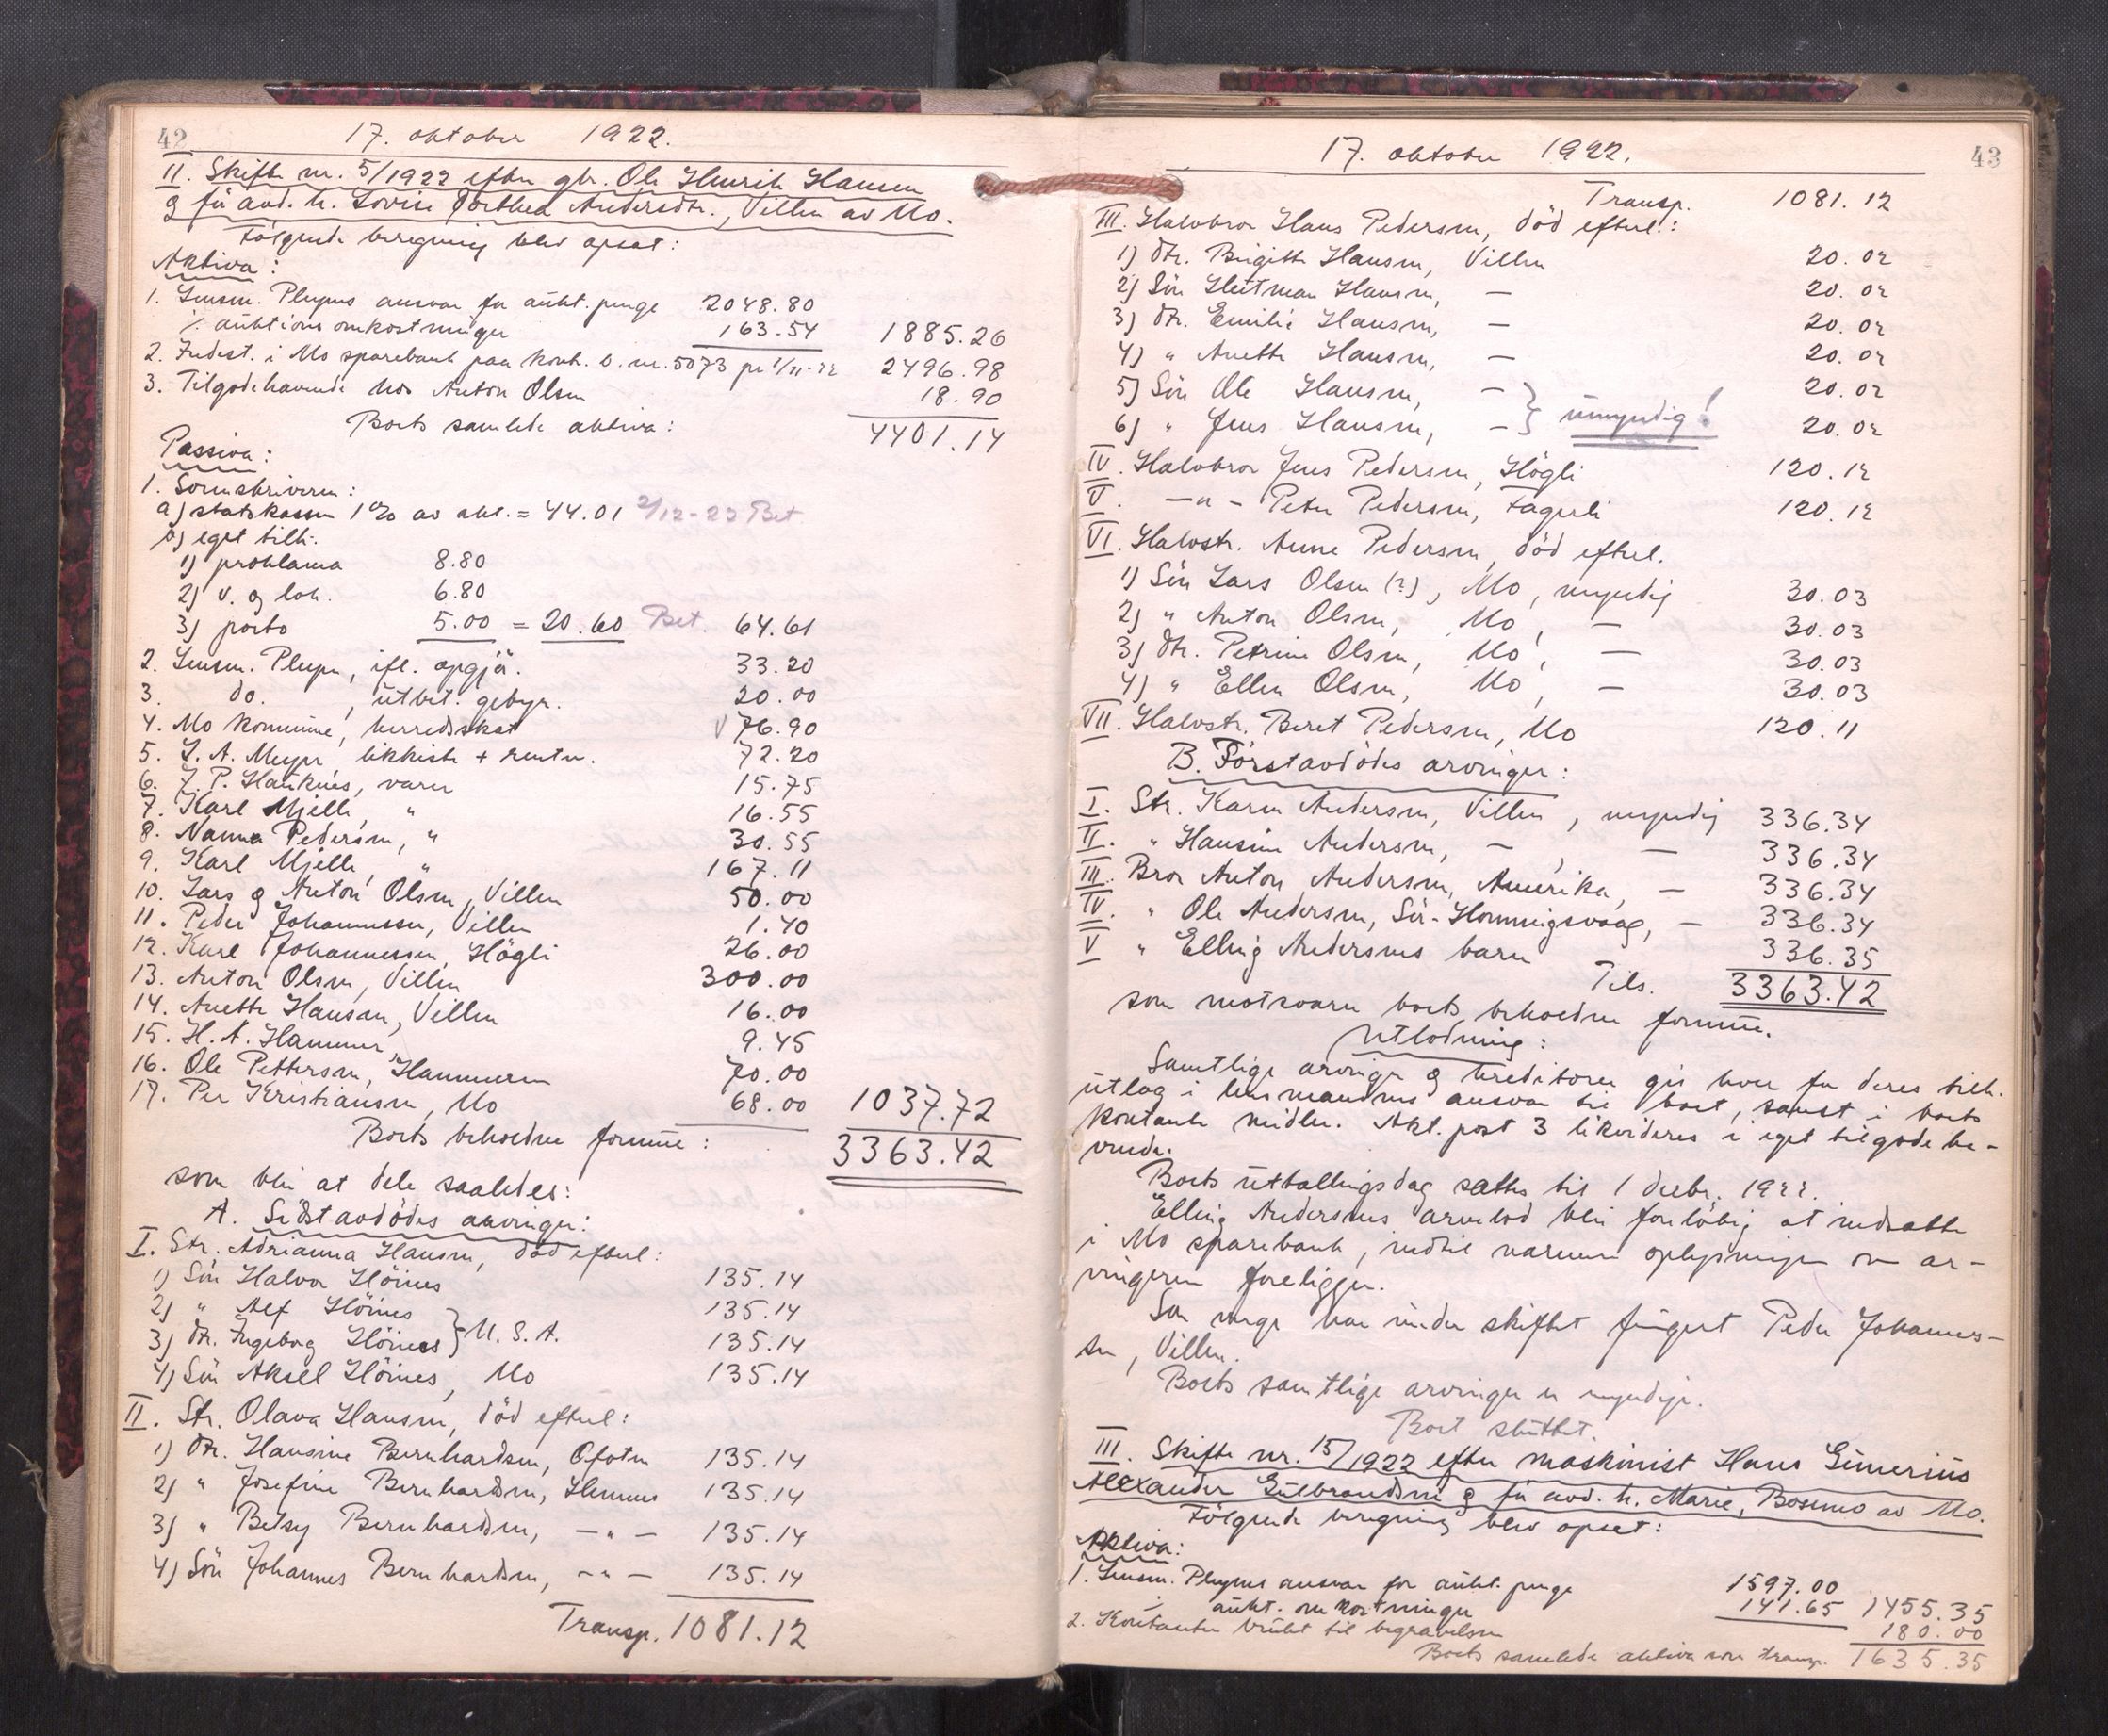 42
17. oktober 1922.
II. Skifte nr. 5/1922 efter gbr. Ole Henrik Hansen
& før avd. h. Lovise Dorthea Andersdtr., Villen av Mo.
Følgende beregning blev opsat:
Aktiva:
1. Lensm. Plyms ansvar for aukt. penge 2048.80
÷ auktionsomkostninger 163.54 1885.26
2. Indest. i Mo sparebank paa kont. b. nr. 5073 pr 1/11-22 2496.98
3. Tilgodehavende hos Anton Olsen 18.90
Boets samlede aktiva: 4401.14
Passiva:
1. Sorenskriveren:
a) statskassen 1% av akt. = 44.01 2/12-22 Bet.
b) eget tilk.
1) proklama 8.80
2) v. og lok. 6.80
3) porto 5.00 = 20.60 Bet. 64.61
2. Lensm. Plym, ifl. opgjø. 33.20
3. do. , utbet. gebyr. 20.00
4. Mo kommune, herredsskat V 76.90
5. L. A. Meyer likkiste + renter. 72.20
6. J. P. Hauknes, varer 15.75
7. Karl Mjelle, " 16.55
8. Nanna Pedersen, " 30.55
9. Karl Mjelle, " 167.11
10. Lars & Anton Olsen, Villen 50.00
11. Peder Johannessen, Villen 1.40
12. Karl Johannessen, Høgli 26.00
13. Anton Olsen, Villen 300.00
14. Anette Hansen, Villen 16.00
15. H. A. Hammer, 9.45
16. Ole Pettersen, Hammeren 70.00
17. Per Kristiansen, Mo 68.00 1037.72
Boets beholdne formue: 3363.42
som blir at dele saaledes:
A. Sidstavdødes arvinger:
I. Str. Adrianna Hansen, død efterl:
1) Søn Halvor Høines 135.14
2) " Alf Høines 135.14
3) Dtr. Ingeborg Høines } U.S.A. 135.14
4) Søn Aksel Høines, Mo 135.14
II. Str. Olava Hansen, død efterl:
1) Dtr. Hansine Bernhardsen, Ofoten 135.14
2) " Josefine Bernhardsen, Hemnes 135.14
3) " Betsy Bernhardsen, - " - 135.14
4) Søn Johannes Bernhardsen, - " - 135.14
Transp. 1081.12
17. oktober 1922. 43
Transp. 1081.12
III. Halvbror Hans Pedersen, død efterl.:
1) Dtr. Birgitte Hansen, Villen 20.02
2) Søn Heitman Hansen, — 20.02
3) Dtr. Emilie Hansen, — 20.02
4) " Anette Hansen, — 20.02
5) Søn Ole Hansen, — 20.02
6) " Jens Hansen, — } umyndig! 20.02
IV. Halvbror Jens Pedersen, Høgli 120.12
V. — " — Peter Pedersen, Fagerli 120.12
VI. Halvstr. Anne Pedersen, død efterl.
1) Søn Lars Olsen (?), Mo, myndig 30.03
2) " Anton Olsen, Mo, — 30.03
3) Dtr. Petrine Olsen, Mo, — 30.03
4) " Ellen Olsen, Mo, — 30.03
VII. Halvstr. Beret Pedersen, Mo 120.11
B. Førstavdødes arvinger:
I. Str. Karen Andersen, Villen, myndig 336.34
II. " Hansine Andersen, —, — 336.34
III. Bror Anton Andersen, Amerika, — 336.34
IV. " Ole Andersen, Sør-Honningsvaag, — 336.34
V " Elling Andersens barn 336.35
Tils. 3363.42
som motsvarer boets beholdne formue.
Utlodning:
Samtlige arvinger & kreditorer gis hver for deres tilk.
utlæg i lensmandens ansvar til boet, samt i boets
kontante midler. Akt. post 3 likvideres i eget tilgodeha-
vende.
Boets utbetalingsdag sættes til 1 decbr. 1922.
Elling Andersens arvelod blir foreløbig at indsætte
i Mo sparebank, indtil nærmere oplysninger om ar-
vingeren foreligger.
Som verge har under skiftet fungert Peder Johannes-
sen, Villen.
Boets samtlige arvinger er myndige.
Boet sluttet.
III. Skifte nr. 15/1922 efter maskinist Hans Gunerius
Alexander Gulbrandsen & før avd. h. Marie, Bossmo av Mo.
Følgende beregning blev opsat:
Aktiva:
1. Lensm. Plyms ansvar for aukt. penge 1597.00
÷ aukt. omkostninger 141.65 1455.35
2. Kontanter brukt til begravelsen 180.00
Boets samlede aktiva som transp. 1635.35